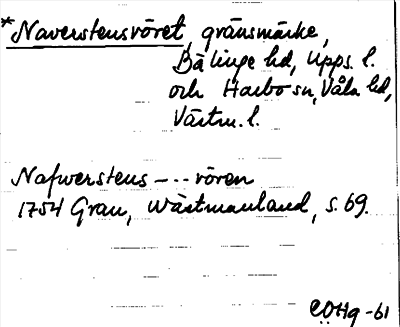 *Naverstensröret, gränsmärke,
Bälinge hd, Upps. l.
och Harbo sn, Våla hd,
Västm. l.
Nafwerstens --- rören
1754 Grau, Wästmanland, s. 69.
CÖHg -61